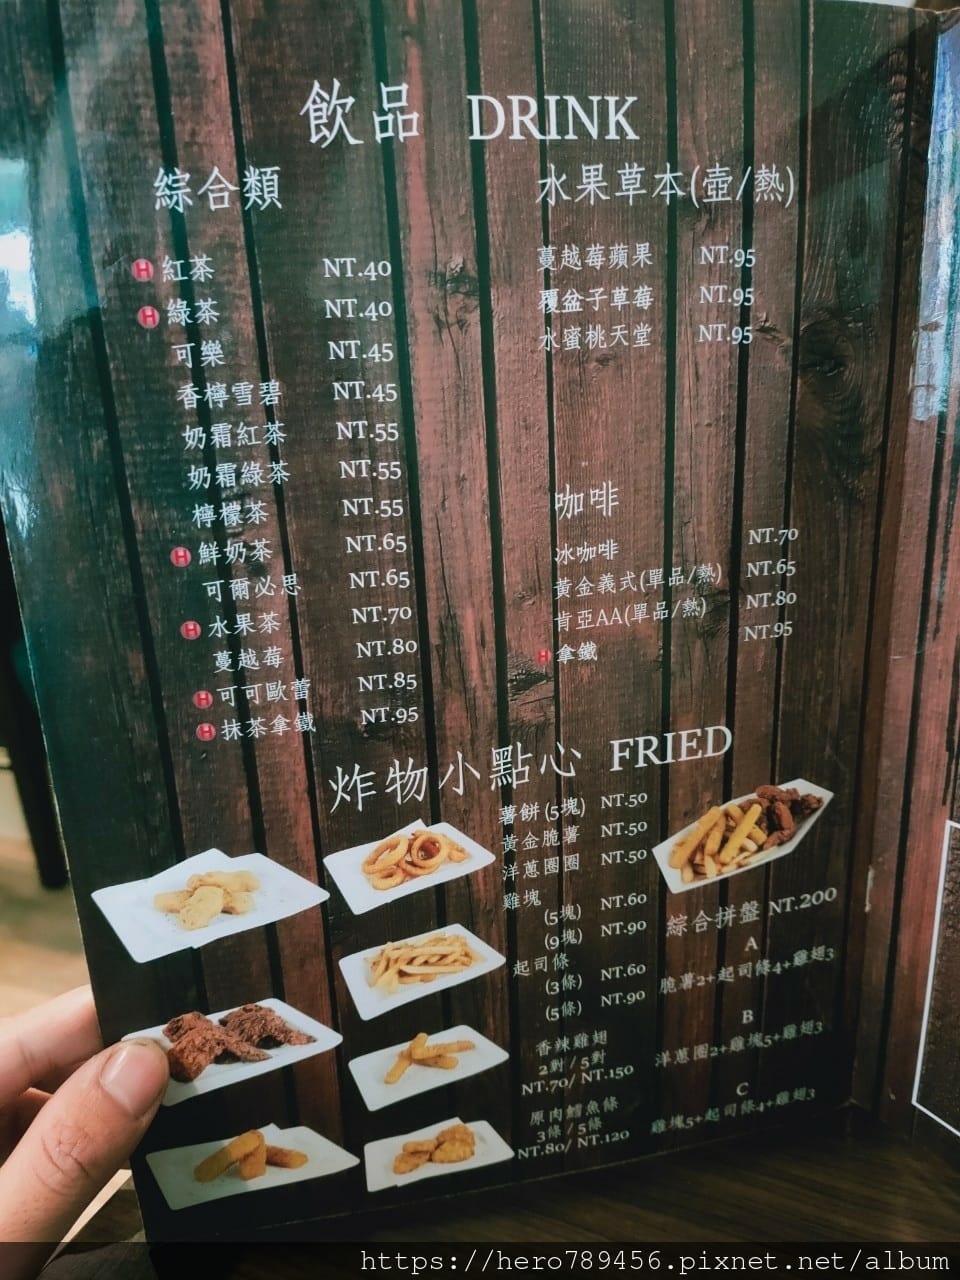 飲品 DRINK
綜合類
H 紅茶 NT.40
H 綠茶 NT.40
可樂 NT.45
香檸雪碧 NT.45
奶霜紅茶 NT.55
奶霜綠茶 NT.55
檸檬茶 NT.55
H 鮮奶茶 NT.65
可爾必思 NT.65
H 水果茶 NT.70
蔓越莓 NT.80
H 可可歐蕾 NT.85
H 抹茶拿鐵 NT.95
水果草本(壺/熱)
蔓越莓蘋果 NT.95
覆盆子草莓 NT.95
水蜜桃天堂 NT.95
咖啡
冰咖啡 NT.70
黃金義式(單品/熱) NT.65
肯亞AA(單品/熱) NT.80
H 拿鐵 NT.95
炸物小點心 FRIED
薯餅(5塊) NT.50
黃金脆薯 NT.50
洋蔥圈圈 NT.50
雞塊
(5塊) NT.60
(9塊) NT.90
起司條
(3條) NT.60
(5條) NT.90
香辣雞翅
2對/5對
NT.70/NT.150
原肉鱈魚條
3條/5條
NT.80/NT.120
綜合拼盤 NT.200
A
脆薯2+起司條4+雞翅3
B
洋蔥圈2+雞塊5+雞翅3
C
雞塊5+起司條4+雞翅3
https://hero789456.pixnet.net/album